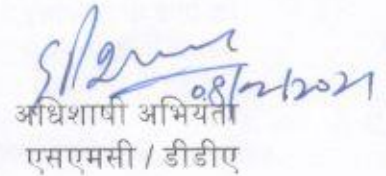 08/2/2021
अधिशाषी अभियंता
एसएमसी / डीडीए